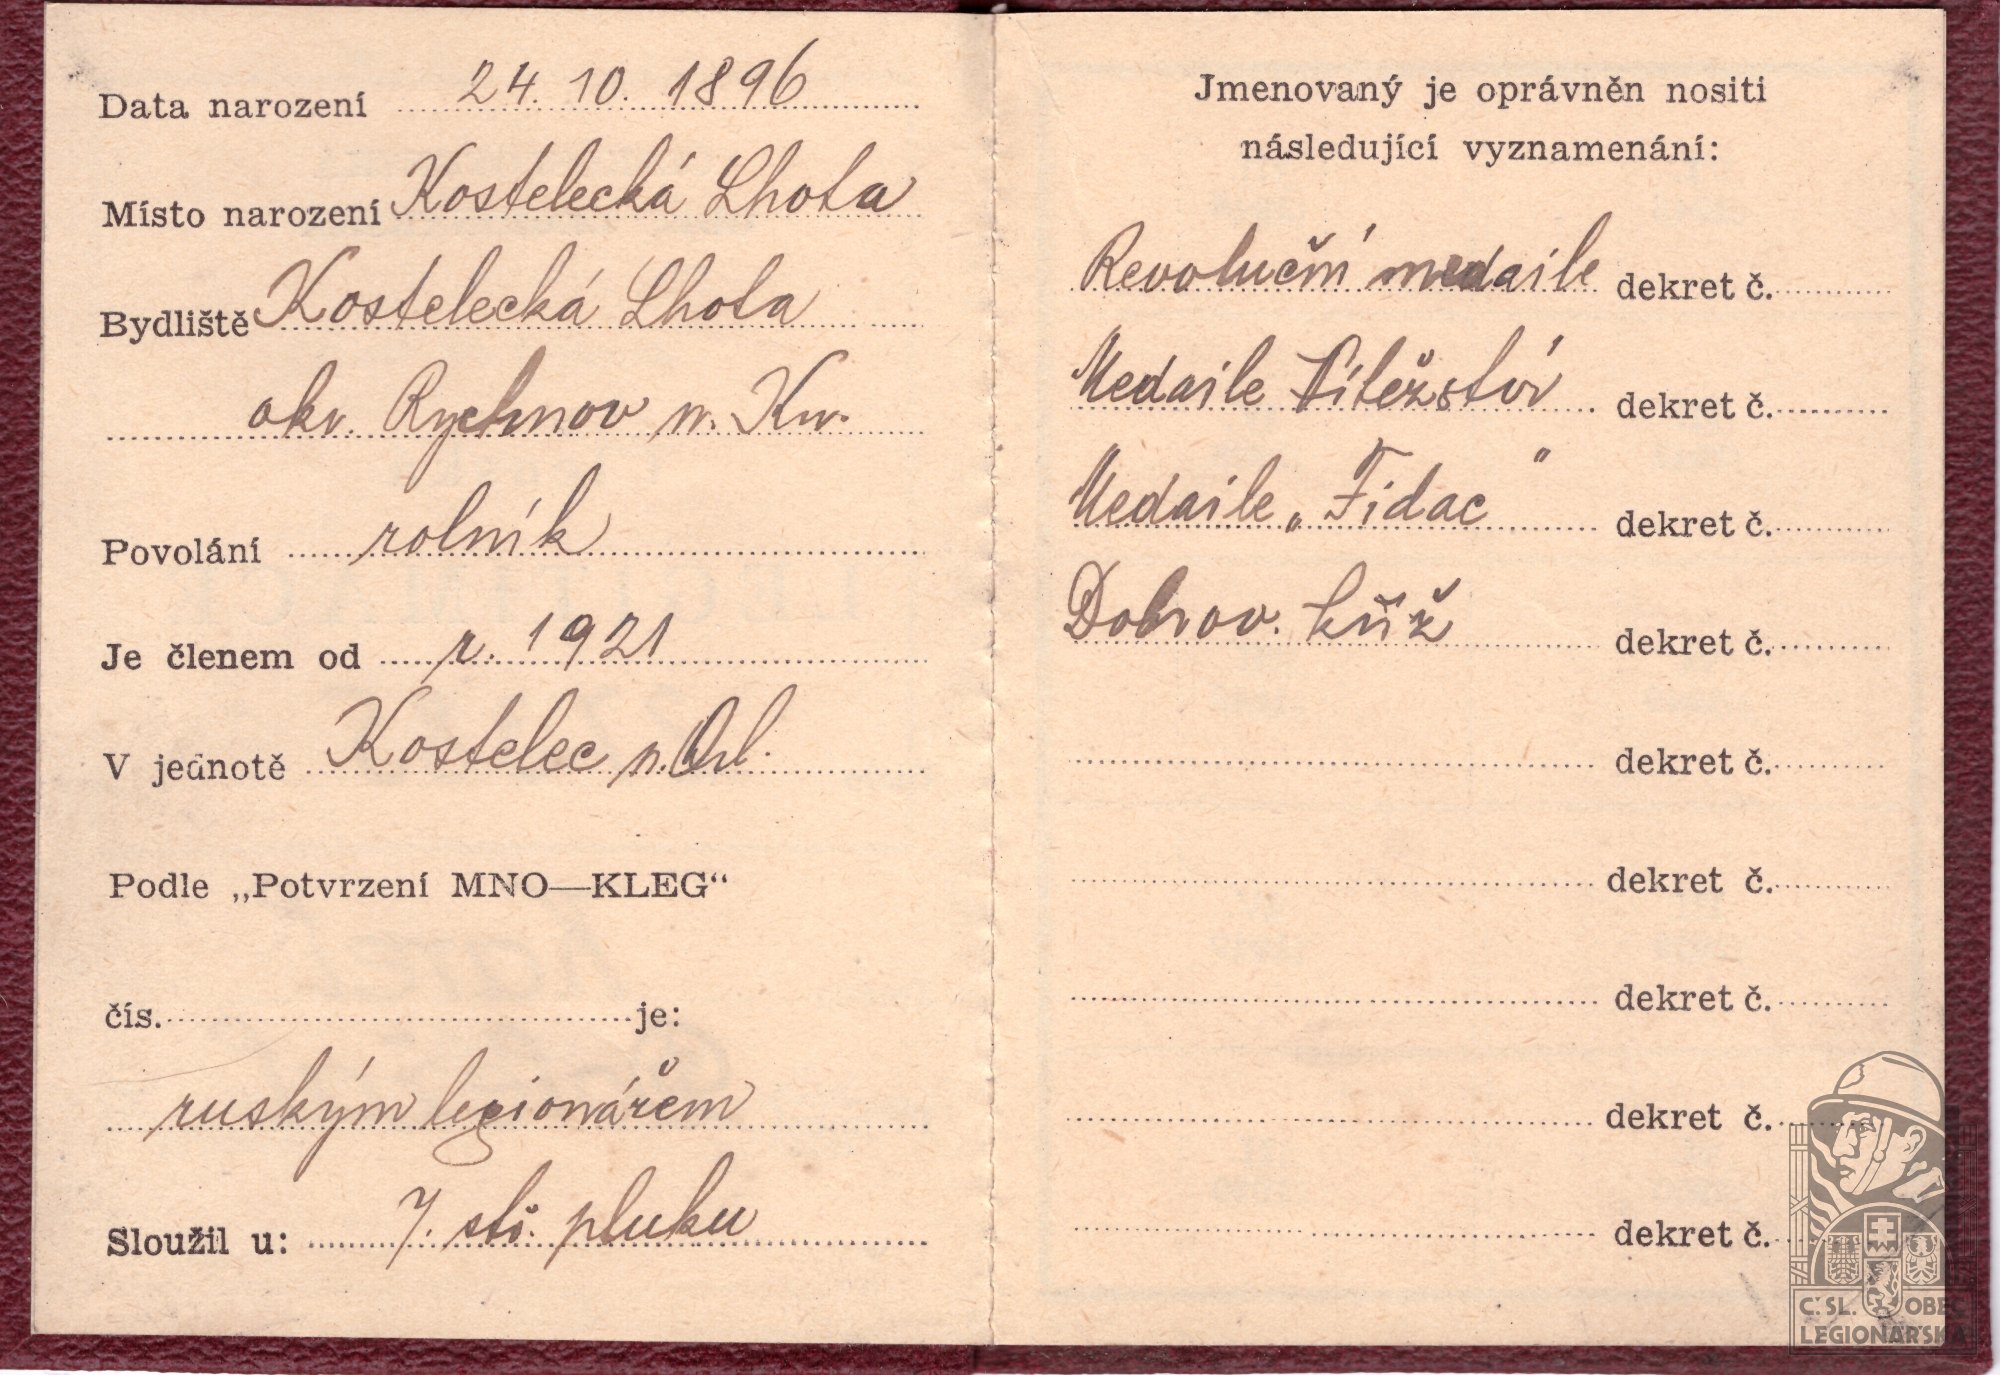 Data narození 24. 10. 1896
Místo narození Kostelecká Lhota
Bydliště Kostelecká Lhota
okr. Rychnov n. Kn.
Povolání rolník
Je členem od r. 1921
V jednotě Kostelec n. Orl.
Podle „Potvrzení MNO—KLEG“
čís. je:
ruským legionářem
Sloužil u: 7. stř. pluku
Jmenovaný je oprávněn nositi
následující vyznamenání:
Revoluční medaile dekret č.
Medaile Vítězství dekret č.
Medaile „Fidac" dekret č.
Dobrov. kříž dekret č.
dekret č.
dekret č.
dekret č.
dekret č.
dekret č.
Č. SL. OBEC
LEGIONÁŘSKÁ